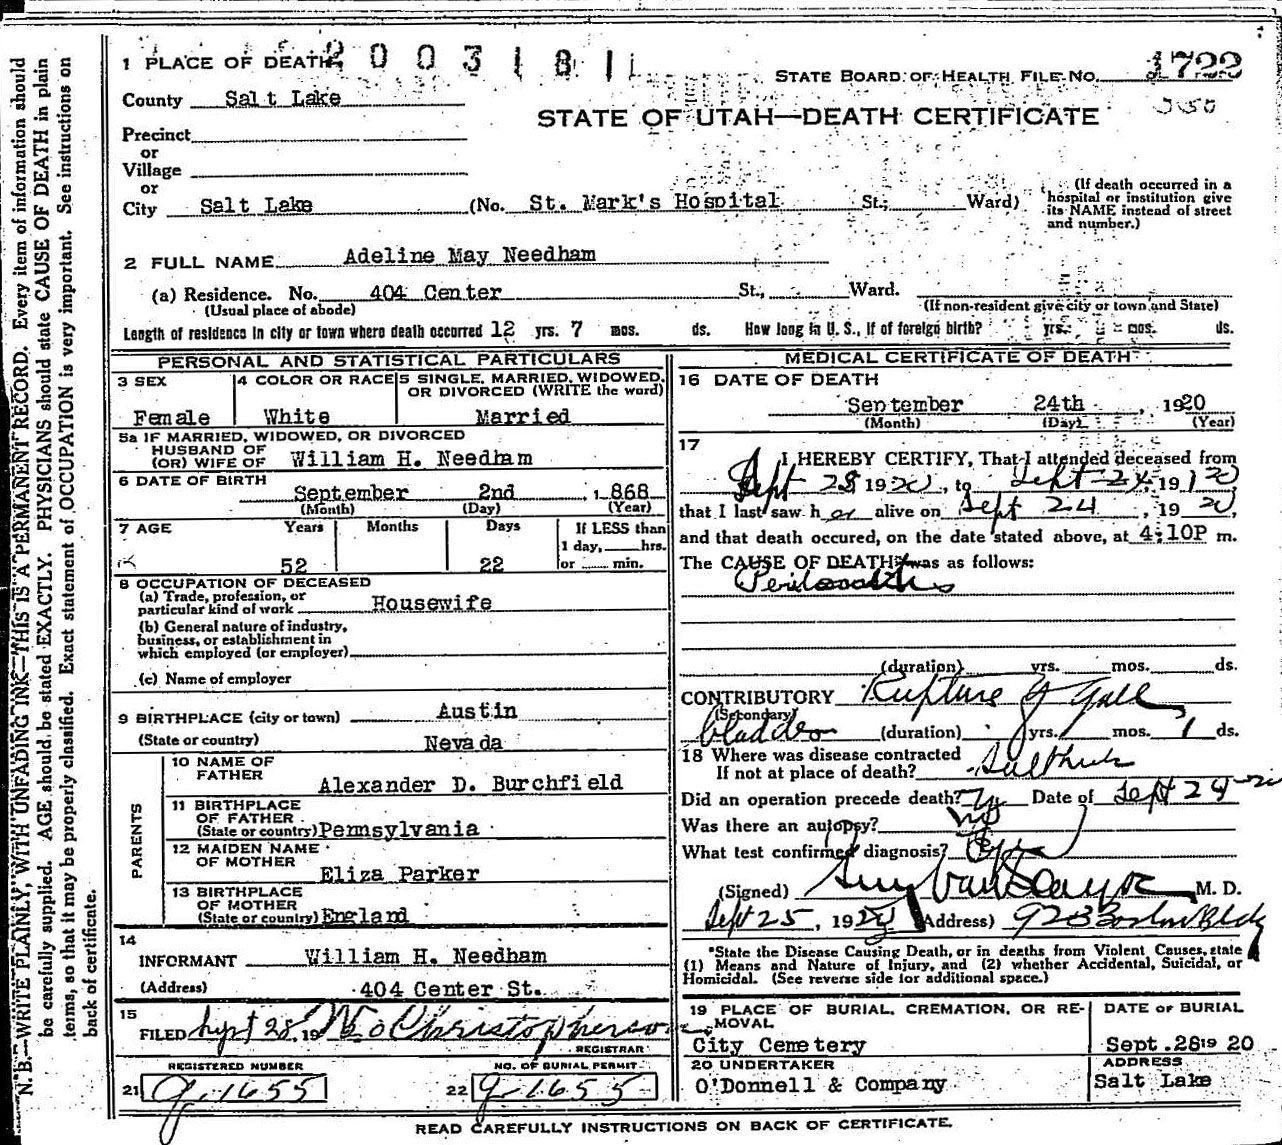 N.B.—WRITE PLAINLY, WITH UNFADING INK—THIS IS A PERMANENT RECORD. Every item of information should
be carefully supplied. AGE should be stated EXACTLY. PHYSICIANS should state CAUSE OF DEATH in plain
terms, so that it may be properly classified. Exact statement of OCCUPATION is very important. See instructions on
back of certificate.
2003181
1 PLACE OF DEATH
STATE BOARD OF HEALTH FILE NO. 1722
County Salt Lake
STATE OF UTAH—DEATH CERTIFICATE
Precinct
or
Village
or
City Salt Lake (No. St. Mark's Hospital St.; Ward)
(If death occurred in a
hospital or institution give
its NAME instead of street
and number.)
2 FULL NAME Adeline May Needham
(a) Residence. No. 404 Center St., Ward.
(Usual place of abode) (If non-resident give city or town and State)
Length of residence in city or town where death occurred 12 yrs. 7 mos. ds. How long in U. S., if of foreign birth? yrs. mos. ds.
PERSONAL AND STATISTICAL PARTICULARS
3 SEX
Female
4 COLOR OR RACE
White
5 SINGLE, MARRIED, WIDOWED,
OR DIVORCED (WRITE the word)
Married
5a IF MARRIED, WIDOWED, OR DIVORCED
HUSBAND OF
(OR) WIFE OF William H. Needham
6 DATE OF BIRTH
September 2nd , 1868
(Month) (Day) (Year)
7 AGE Years Months Days If LESS than
1 day, hrs.
52 22 or min.
8 OCCUPATION OF DECEASED
(a) Trade, profession, or
particular kind of work Housewife
(b) General nature of industry,
business, or establishment in
which employed (or employer)
(c) Name of employer
9 BIRTHPLACE (city or town) Austin
(State or country) Nevada
PARENTS
10 NAME OF
FATHER Alexander D. Burchfield
11 BIRTHPLACE
OF FATHER
(State or country) Pennsylvania
12 MAIDEN NAME
OF MOTHER Eliza Parker
13 BIRTHPLACE
OF MOTHER
(State or country) England
14
INFORMANT William H. Needham
(Address) 404 Center St.
15
FILED Sept 28, 19 Christopherson
REGISTRAR
REGISTERED NUMBER NO. OF BURIAL PERMIT
21 g-1655 22 g-1655
MEDICAL CERTIFICATE OF DEATH
16 DATE OF DEATH
September 24th , 1920
(Month) (Day) (Year)
17
I HEREBY CERTIFY, That I attended deceased from
Sept 23, 1920, to Sept 24, 1920
that I last saw her alive on Sept 24, 1920,
and that death occured, on the date stated above, at 4:10P m.
The CAUSE OF DEATH was as follows:
Peritonitis
(duration) yrs. mos. ds.
CONTRIBUTORY Rupture of Gall
(Secondary)
bladder (duration) yrs. mos. 1 ds.
18 Where was disease contracted
If not at place of death?
Did an operation precede death? Yes Date of Sept 24-20
Was there an autopsy? No
What test confirmed diagnosis?
(Signed) M. D.
Sept 25, 1920 (Address) 923 Boston Bldg
*State the Disease Causing Death, or in deaths from Violent Causes, state
(1) Means and Nature of Injury, and (2) whether Accidental, Suicidal, or
Homicidal. (See reverse side for additional space.)
19 PLACE OF BURIAL, CREMATION, OR RE-
MOVAL
City Cemetery
DATE OF BURIAL
Sept. 28 19 20
20 UNDERTAKER
O'Donnell & Company
ADDRESS
Salt Lake
READ CAREFULLY INSTRUCTIONS ON BACK OF CERTIFICATE.